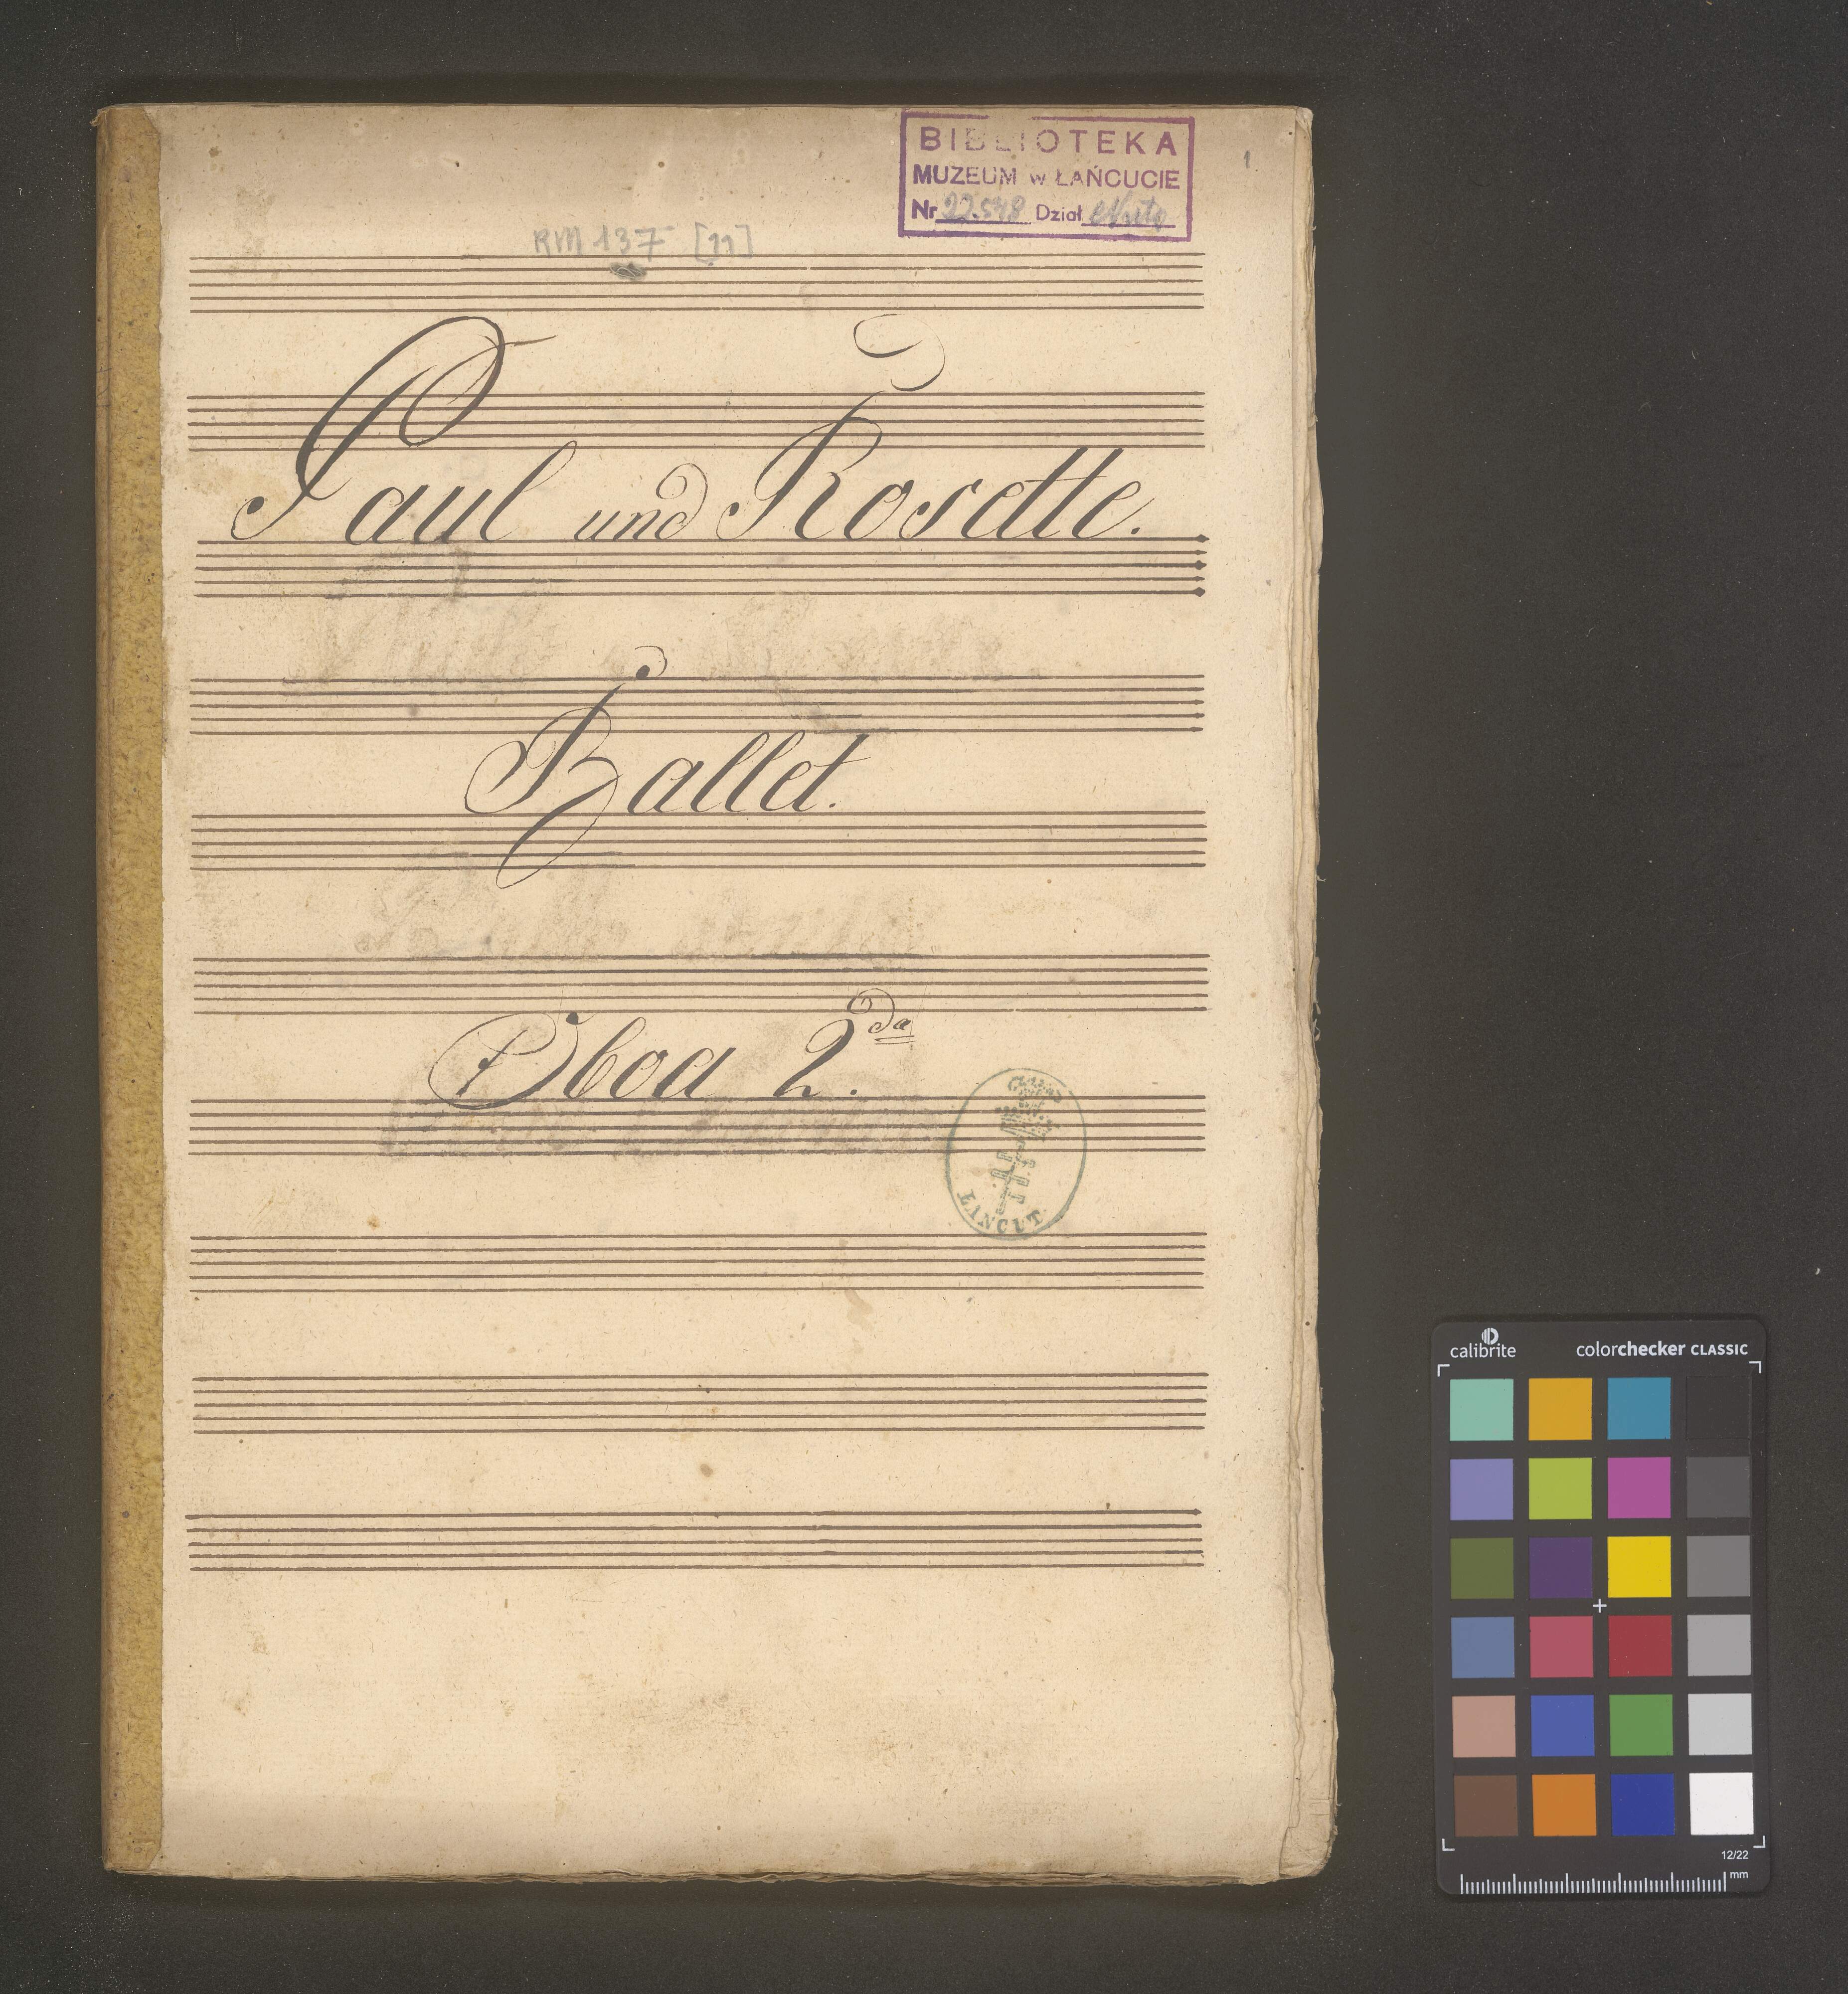 BIBLIOTEKA
MUZEUM w ŁAŃCUCIE
Nr 22.548 Dział
1
RM 137 [11]
Paul und Rosette.
Ballet.
Oboa 2da.
LINCUT
calibrite colorchecker CLASSIC
12/22
mm